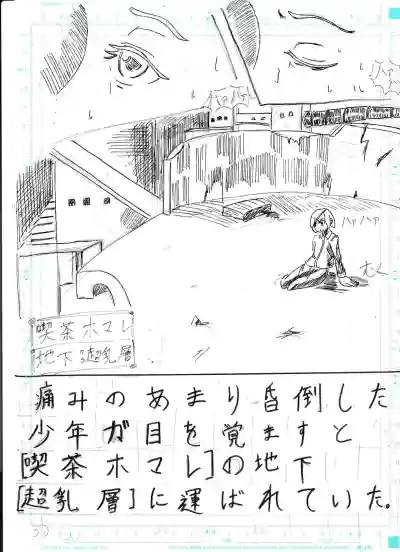 ハァハァ
ハァハァ
むく
喫茶ホマレ
地下超乳層
痛みのあまり昏倒した
少年が目を覚ますと
[喫茶ホマレ]の地下
[超乳層]に運ばれていた。